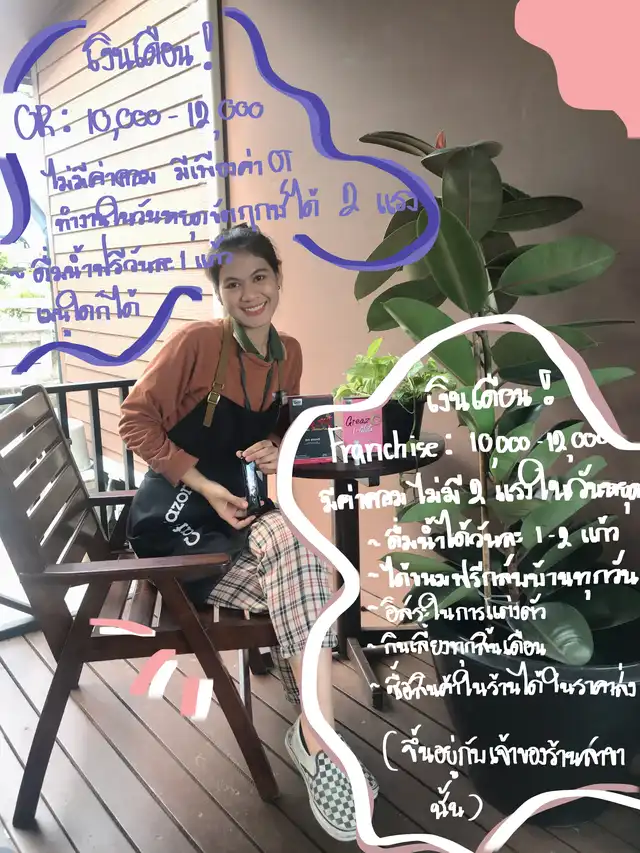 เงินเดือน !
OR : 10,000 - 12,000
ไม่มีค่าคอม มีเพียงค่า OT
ทำงานในวันหยุดนักฤกษ์ได้ 2 แรง
~ ดื่มน้ำฟรีวันละ 1 แก้ว
เมนูใดก็ได้
เงินเดือน !
Franchise : 10,000 - 12,000
มีค่าคอม ไม่มี 2 แรงในวันหยุด
~ ดื่มน้ำได้วันละ 1 - 2 แก้ว
~ ได้ขนมฟรีกลับบ้านทุกวัน
~ อิสระในการแต่งตัว
~ กินเลี้ยงทุกสิ้นเดือน
~ ซื้อสินค้าในร้านได้ในราคาส่ง
( ขึ้นอยู่กับเจ้าของร้านสาขา
นั้น )
Café
azon